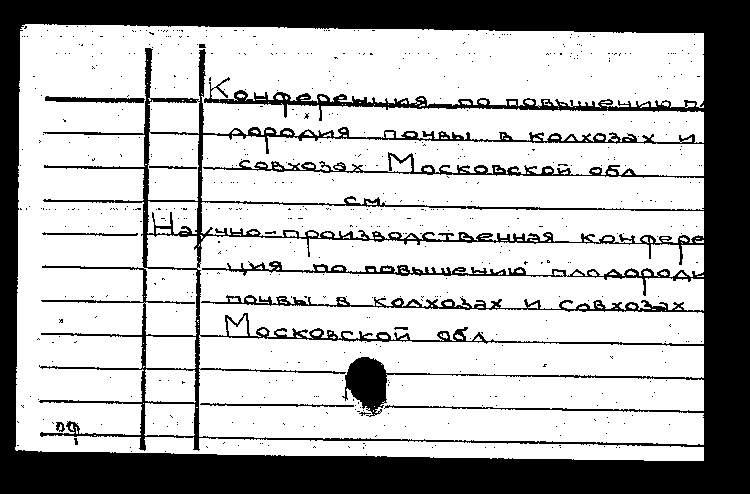 Конференция по повышению пл
дородия почвы в колхозах и
совхозах Московской обл
см.
Научно-производственная конфере
ция по повышению плодороди
почвы в колхозах и совхозах
Московской обл.
оф